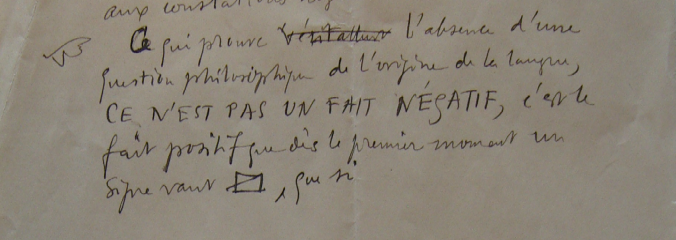 aux constations
Ce qui prouve l'absence d'une
question philosophique de l'origine de la langue,
CE N'EST PAS UN FAIT NÉGATIF, c'est le
fait positif que dès le premier moment un
signe vaut , que si